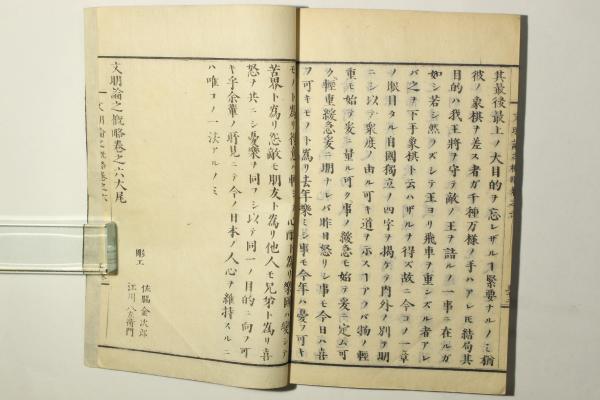 其最後最上ノ大目的ヲ忘レザルヿ緊要ナルノミ猶
彼ノ象棋ヲ差ス者ガ千種万様ノ手ハアレ𪜈結局其
目的ハ我王將ヲ守テ敵ノ王ヲ詰ルノ一事ニ在ルガ
如シ若シ然ラズシテ王ヨリ飛車ヲ重ンズル者アレ
バ之ヲ下手象棋ト云ハザルヲ得ズ故ニ今コノ一章
ノ眼目タル自國獨立ノ四字ヲ掲ケテ内外ノ別ヲ明
ニシ以テ衆庶ノ由ル可キ道ヲ示スヿアラバ物ノ輕
重モ始テ爰ニ量ル可ク事ノ緩急モ始テ爰ニ定ム可
ク輕重緩急爰ニ明ナレバ昨日怒リシ事モ今日ハ喜
ヲ可キモノト為リ去年樂ミシ事モ今年ハ憂ヲ可キ
モノト為リ得意ハ轉ジテ心配ト為リ樂國ハ變シテ
苦界ト為リ怨敵モ朋友ト為リ他人モ兄弟ト為リ喜
怒ヲ共ニシ憂樂ヲ同フシ以テ同一ノ目的ニ向フ可
キ乎余輩ノ所見ニテ今ノ日本ノ人心ヲ維持スルニ
ハ唯コノ一法アルノミ
文明論之概略巻之六大尾
彫工
佐脇金次郎
江川八左衛門